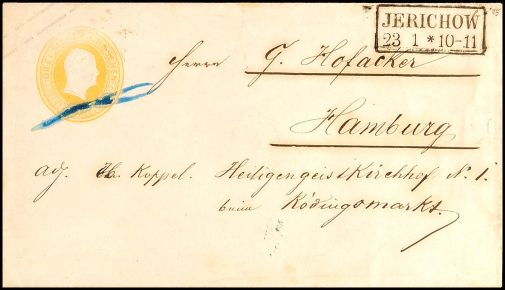 JERICHOW
23 1 * 10-11
Herrn G. Hofacker
Hamburg
adj. Koppel. Heiligengeist Kirchhof N. 1.
beim Rödingsmarkt.